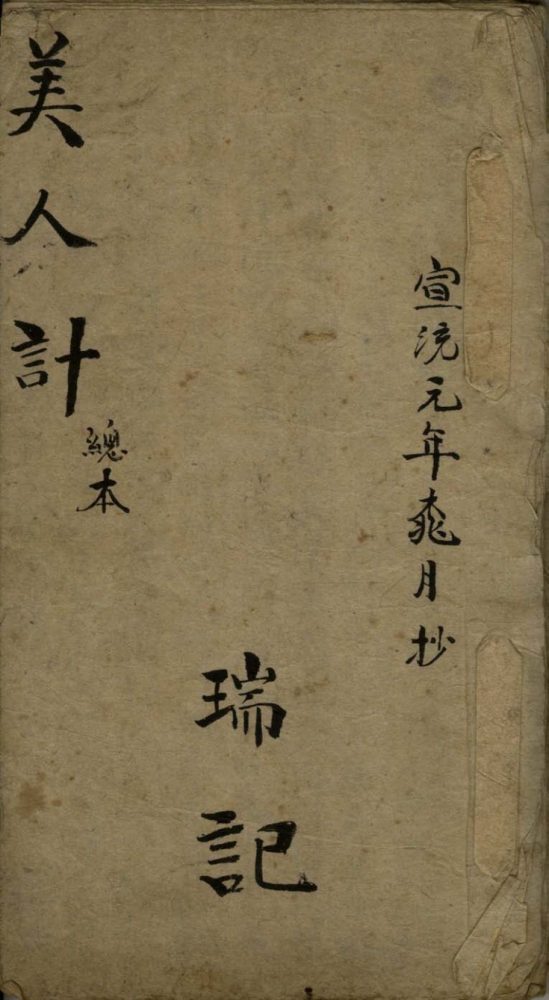 宣統元年桃月抄
瑞記
美人計
總本